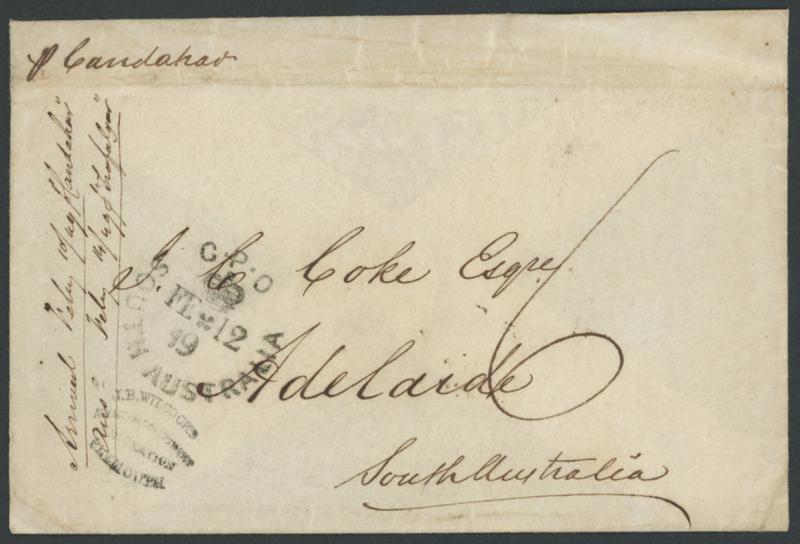 p Candahar
Arrival Feby 10/49 p "Candahar"
Ans. Feby 14/49 p "Trafalgar"
G.P.O
FE*12
49
SOUTH AUSTRALIA
J. C Coke Esqre
Adelaide
South Australia
6
J.B. WILCOCKS
EMIGRATION
PLYMOUTH